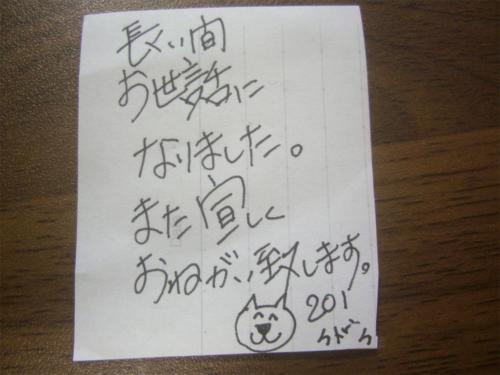 長くい間
お世話に
なりました。
また宜しく
おねがい致します。
201